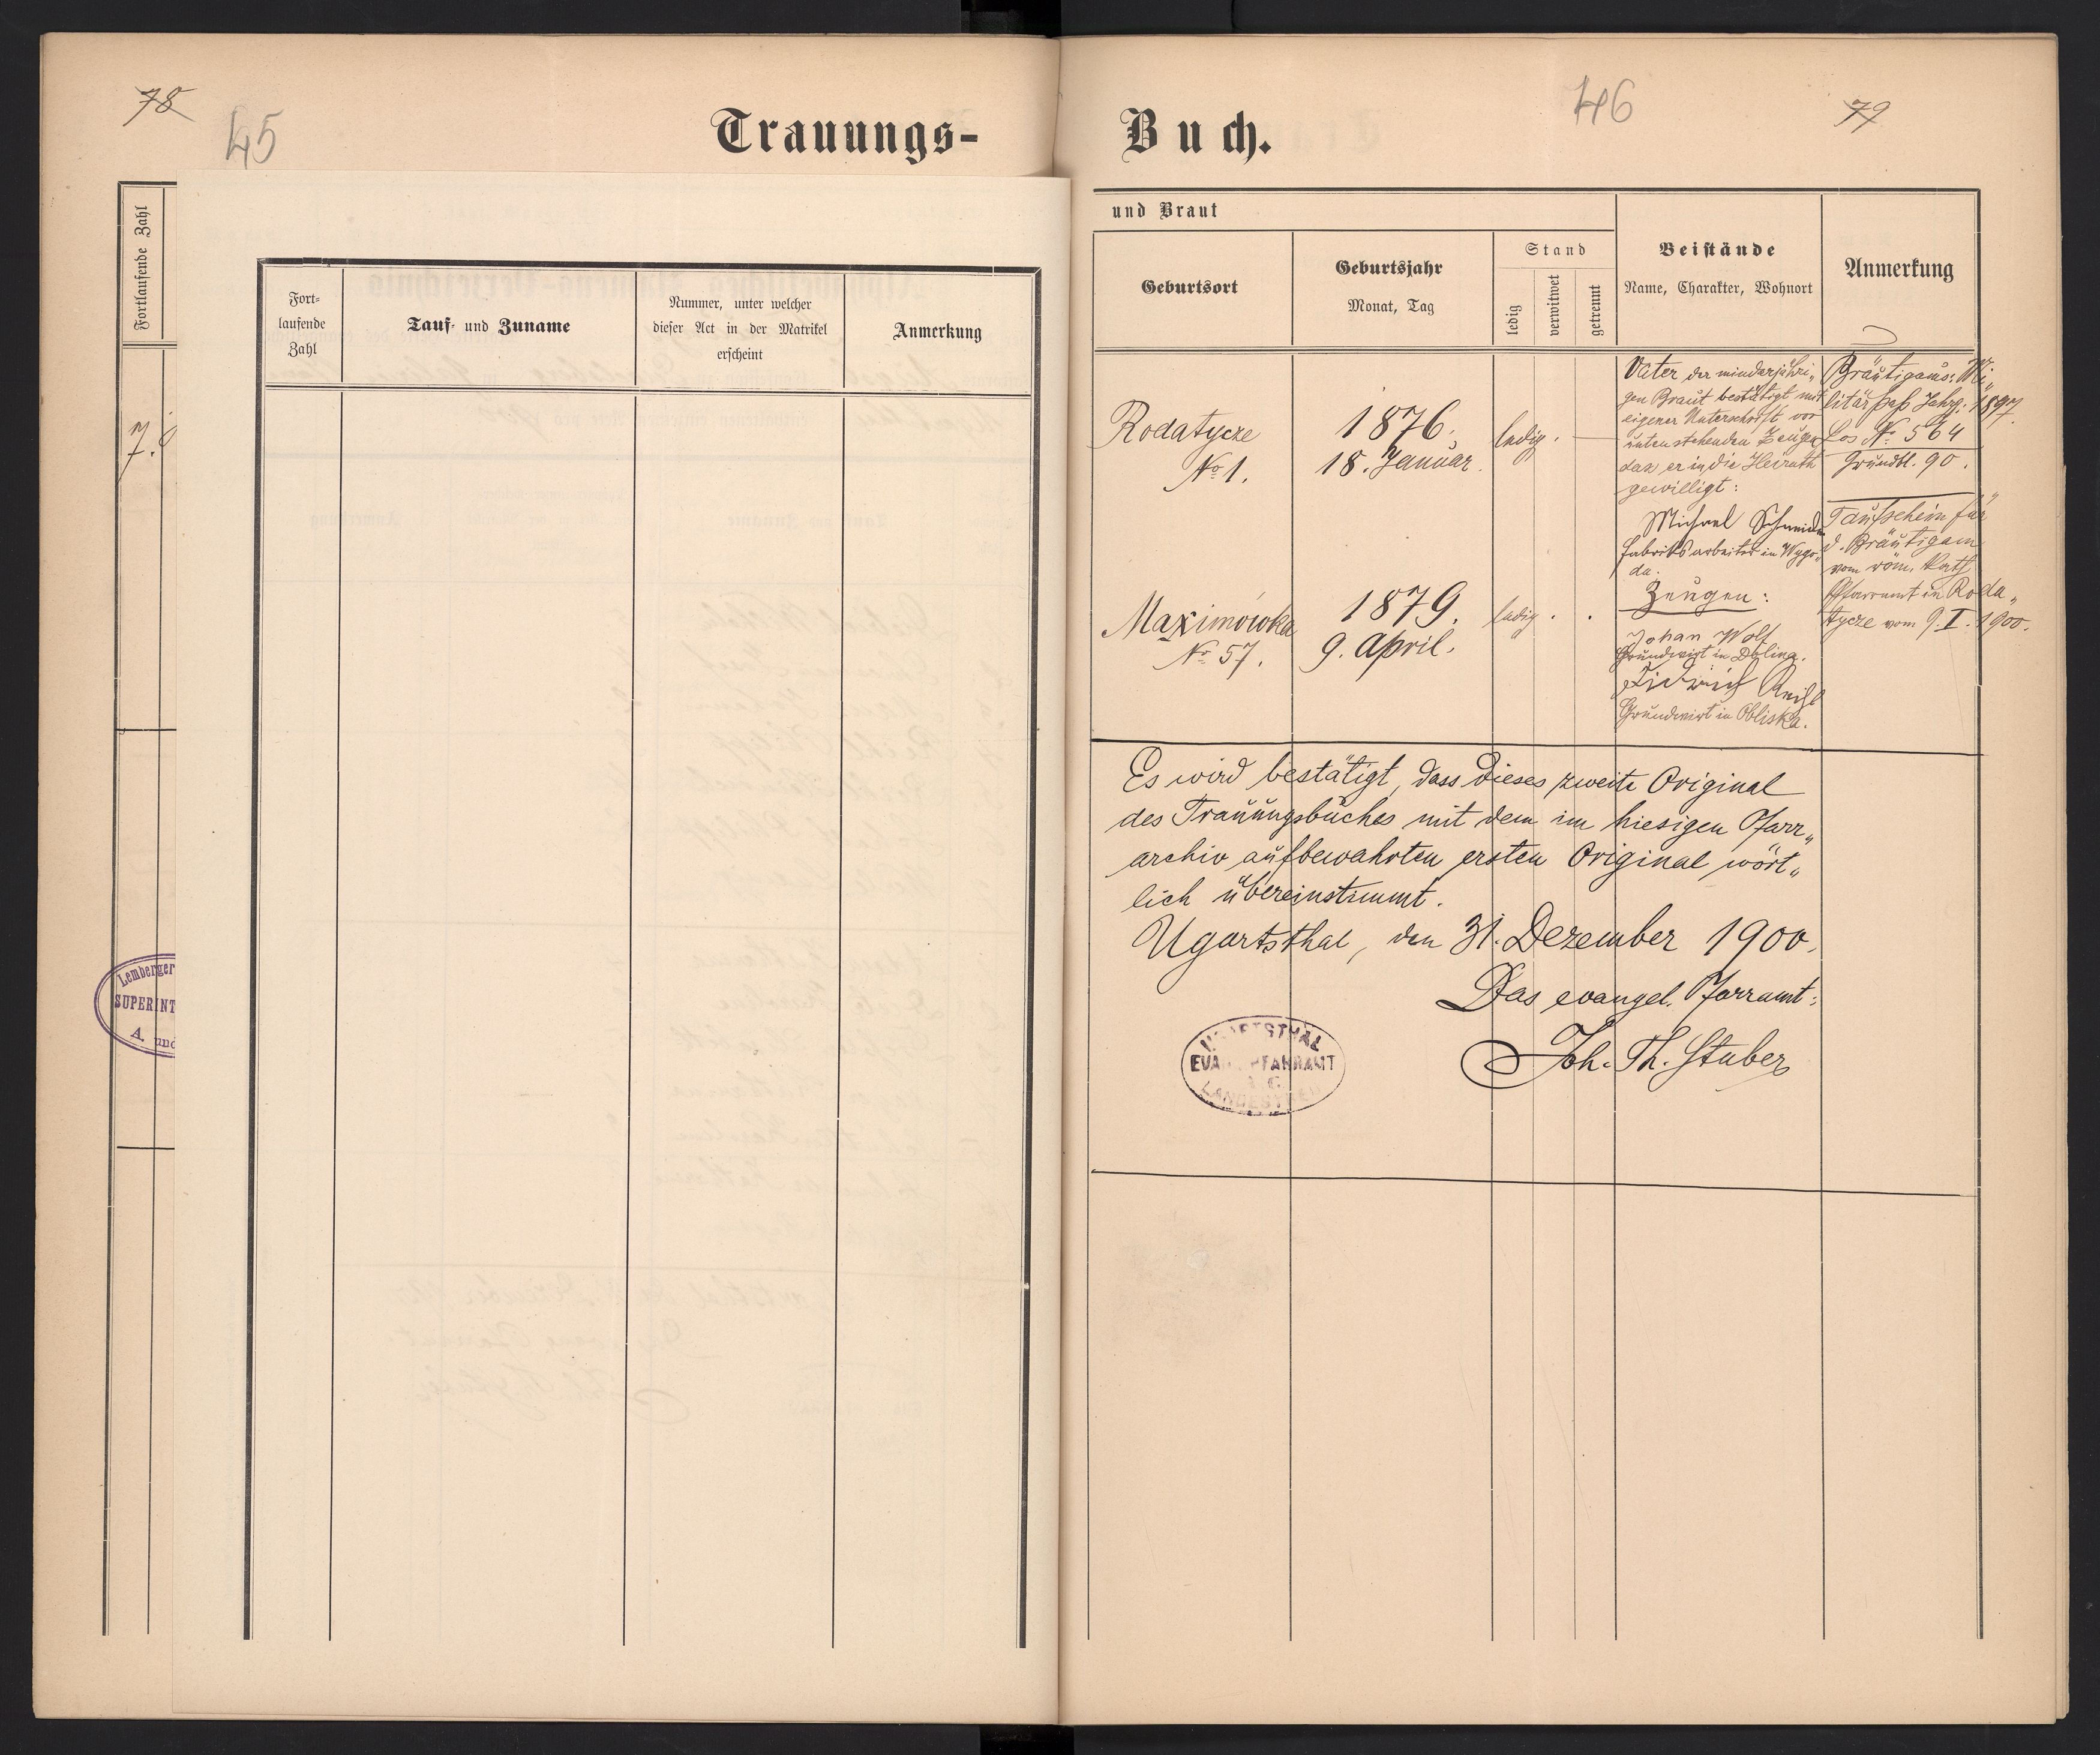 78
45
Trauungs-
Fortlaufende Zahl
7.
Lemberger
SUPERINT
A. und
Fort-
laufende
Zahl
Tauf- und Zuname
Nummer, unter welcher
dieser Act in der Matrikel
erscheint
Anmerkung
Buch.
46
79
und Braut
Geburtsort
Geburtsjahr
Monat, Tag
Stand
ledig
verwitwet
getrennt
Beistände
Name, Charakter, Wohnort
Anmerkung
Rodatycze
No 1.
1876.
18. Januar.
ledig.
Vater der minderjähri„
gen Braut bestätigt mit
eigener Unterschrift vor
untenstehenden Zeugen
das er in die Heirath
gewilligt:
Michael Schneider
Fabriksarbeiter in Wygo„
da.
Zeugen:
Johan Wolf
Grundwirt in Dolina.
Reichl
Grundwirt in Obliska.
Bräutigams: Mi„
litärpaß Jahrg. 1897.
Los No 564
Grundbl. 90.
Taufschein für
d. Bräutigam
vom röm. kath
Pfarramt in Roda„
tycze vom 9. I. 1900.
Maximowka
No 57.
1879.
9. April.
ledig.
Es wird bestätigt, dass dieses zweite Original
des Trauungsbuches mit dem im hiesigen Pfarr„
archiv aufbewahrten ersten Original wört„
lich übereinstimmt.
Ugartsthal, den 31. Dezember 1900.
Das evangel. Pfarramt:
Joh. Th. Stuber